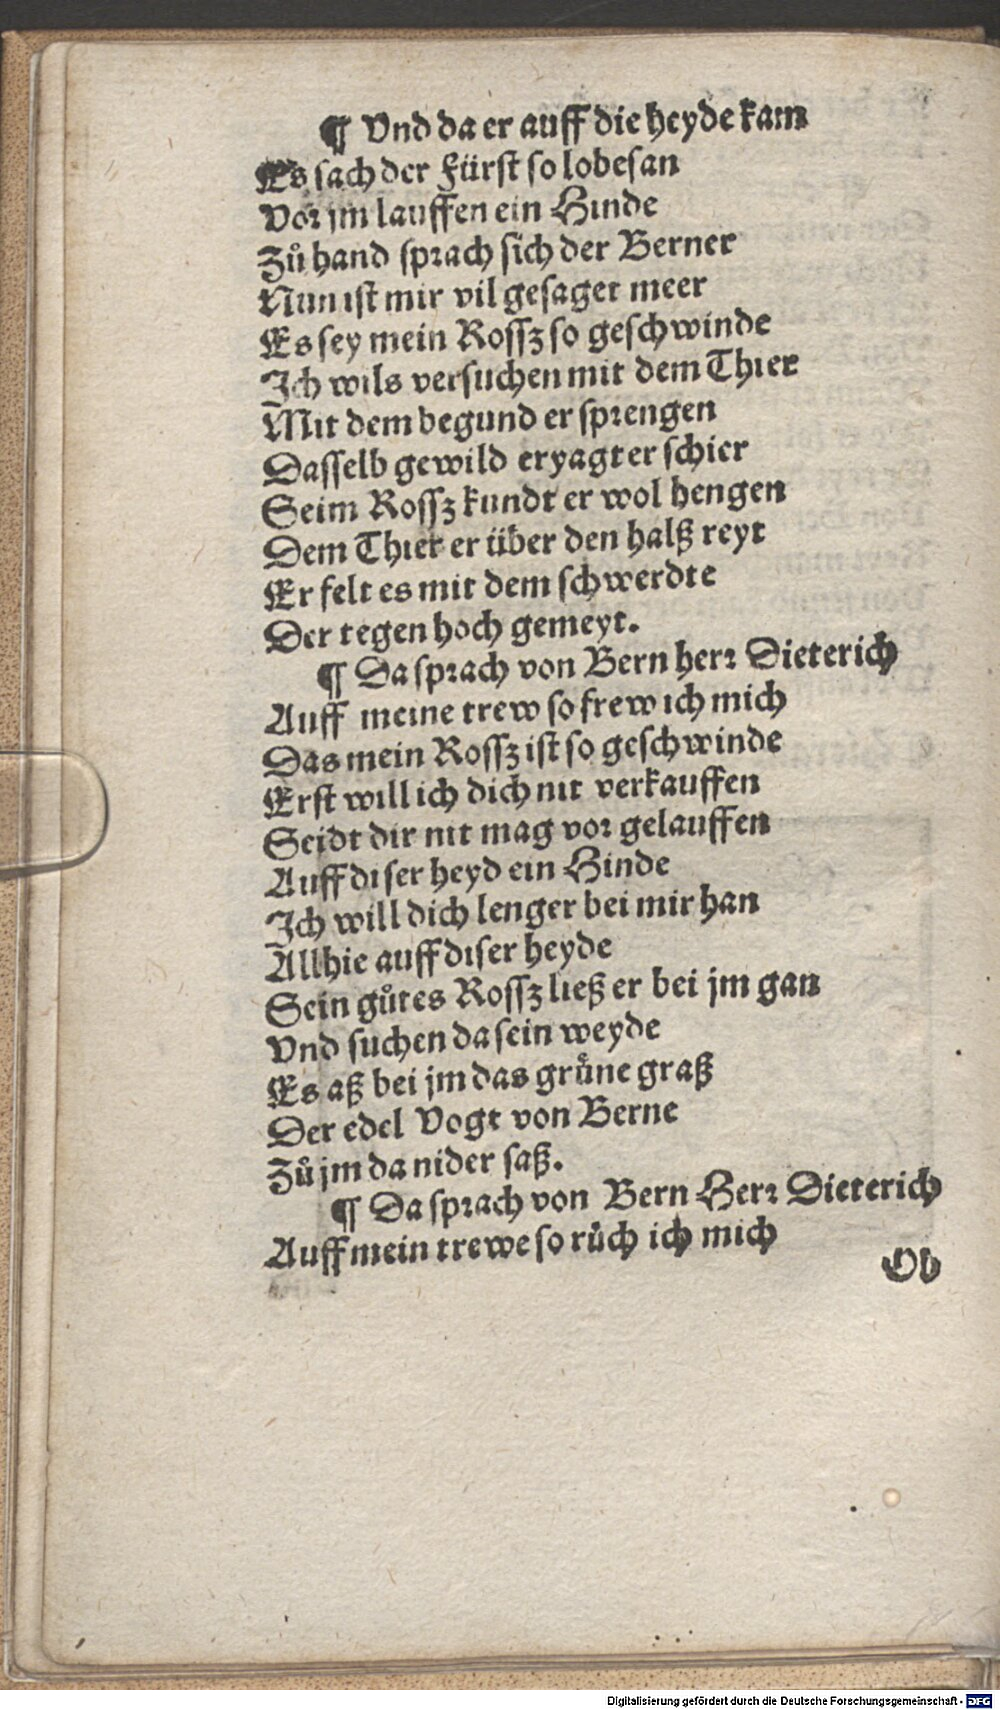 ¶ Vnd da er auff die heyde kam
Es sach der Fürst so lobesan
Vor jm lauffen ein Hinde
Zů hand sprach sich der Berner
Nun ist mir vil gesaget meer
Es sey mein Rossz so geschwinde
Ich wils versuchen mit dem Thier
Mit dem begund er sprengen
Dasselb gewild eryagt er schier
Seim Rossz kundt er wol hengen
Dem Thier er über den halß reyt
Er felt es mit dem schwerdte
Der tegen hoch gemeyt.
¶ Da sprach von Bern herr Dieterich
Auff meine trew so frew ich mich
Das mein Rossz ist so geschwinde
Erst will ich dich nit verkauffen
Seidt dir nit mag vor gelauffen
Auff diser heyd ein Hinde
Ich will dich lenger bei mir han
Allhie auff diser heyde
Sein gůtes Rossz ließ er bei jm gan
Vnd suchen da sein weyde
Es aß bei jm das grůne graß
Der edel Vogt von Berne
Zů jm da nider saß.
¶ Da sprach von Bern Herr Dieterich
Auff mein trewe so růch ich mich
Ob
Digitalisierung gefördert durch die Deutsche Forschungsgemeinschaft - DFG